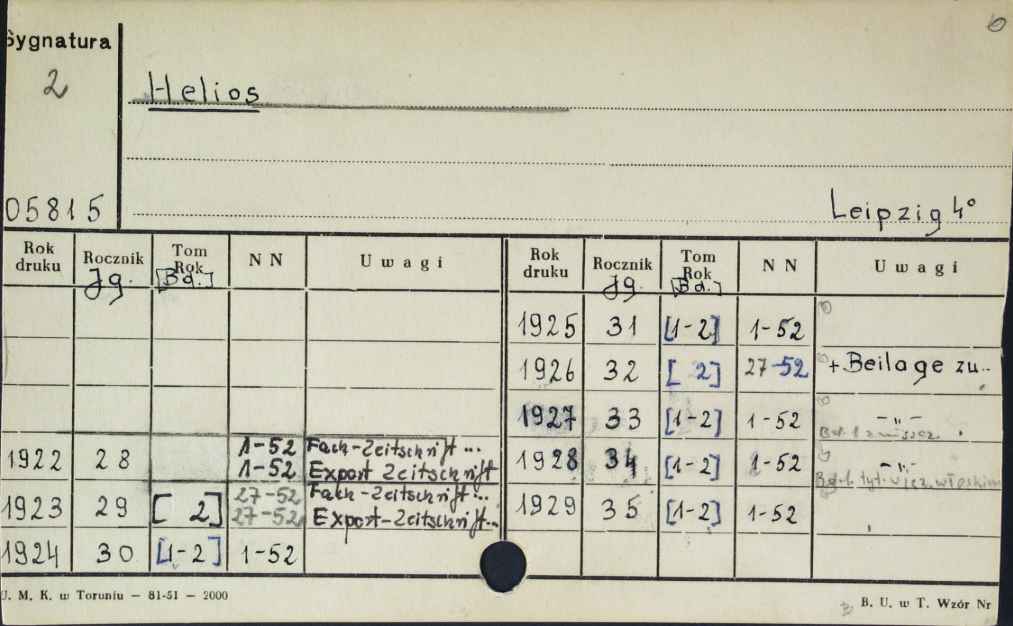 Sygnatura
2
Helios
05815
Leipzig 4°
Rok druku Rocznik Jg. Tom Rok [Bd.] NN Uwagi
Rok druku Rocznik Jg. Tom Rok [Bd.] NN Uwagi
1922 28 1-52 Fach-Zeitschrift ...
1-52 Export Zeitschrift
1923 29 [ 2] 27-52 Fach-Zeitschrift...
27-52 Export-Zeitschrift...
1924 30 [1-2] 1-52
1925 31 [1-2] 1-52
1926 32 [ 2] 27-52 + Beilage zu..
1927 33 [1-2] 1-52 -"-
1928 34 [1-2] 1-52 -"-
tyt. w jęz. włoskim
1929 35 [1-2] 1-52
U. M. K. w Toruniu — 81-51 — 2000
B. U. w T. Wzór Nr